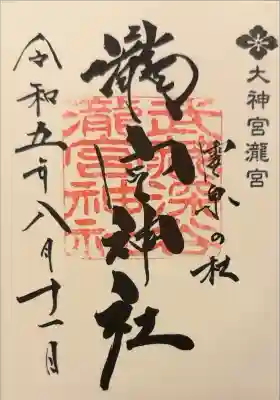 大神宮瀧宮
泉の杜
瀧宮神社
武州深谷
瀧宮神社
令和五年八月十一日